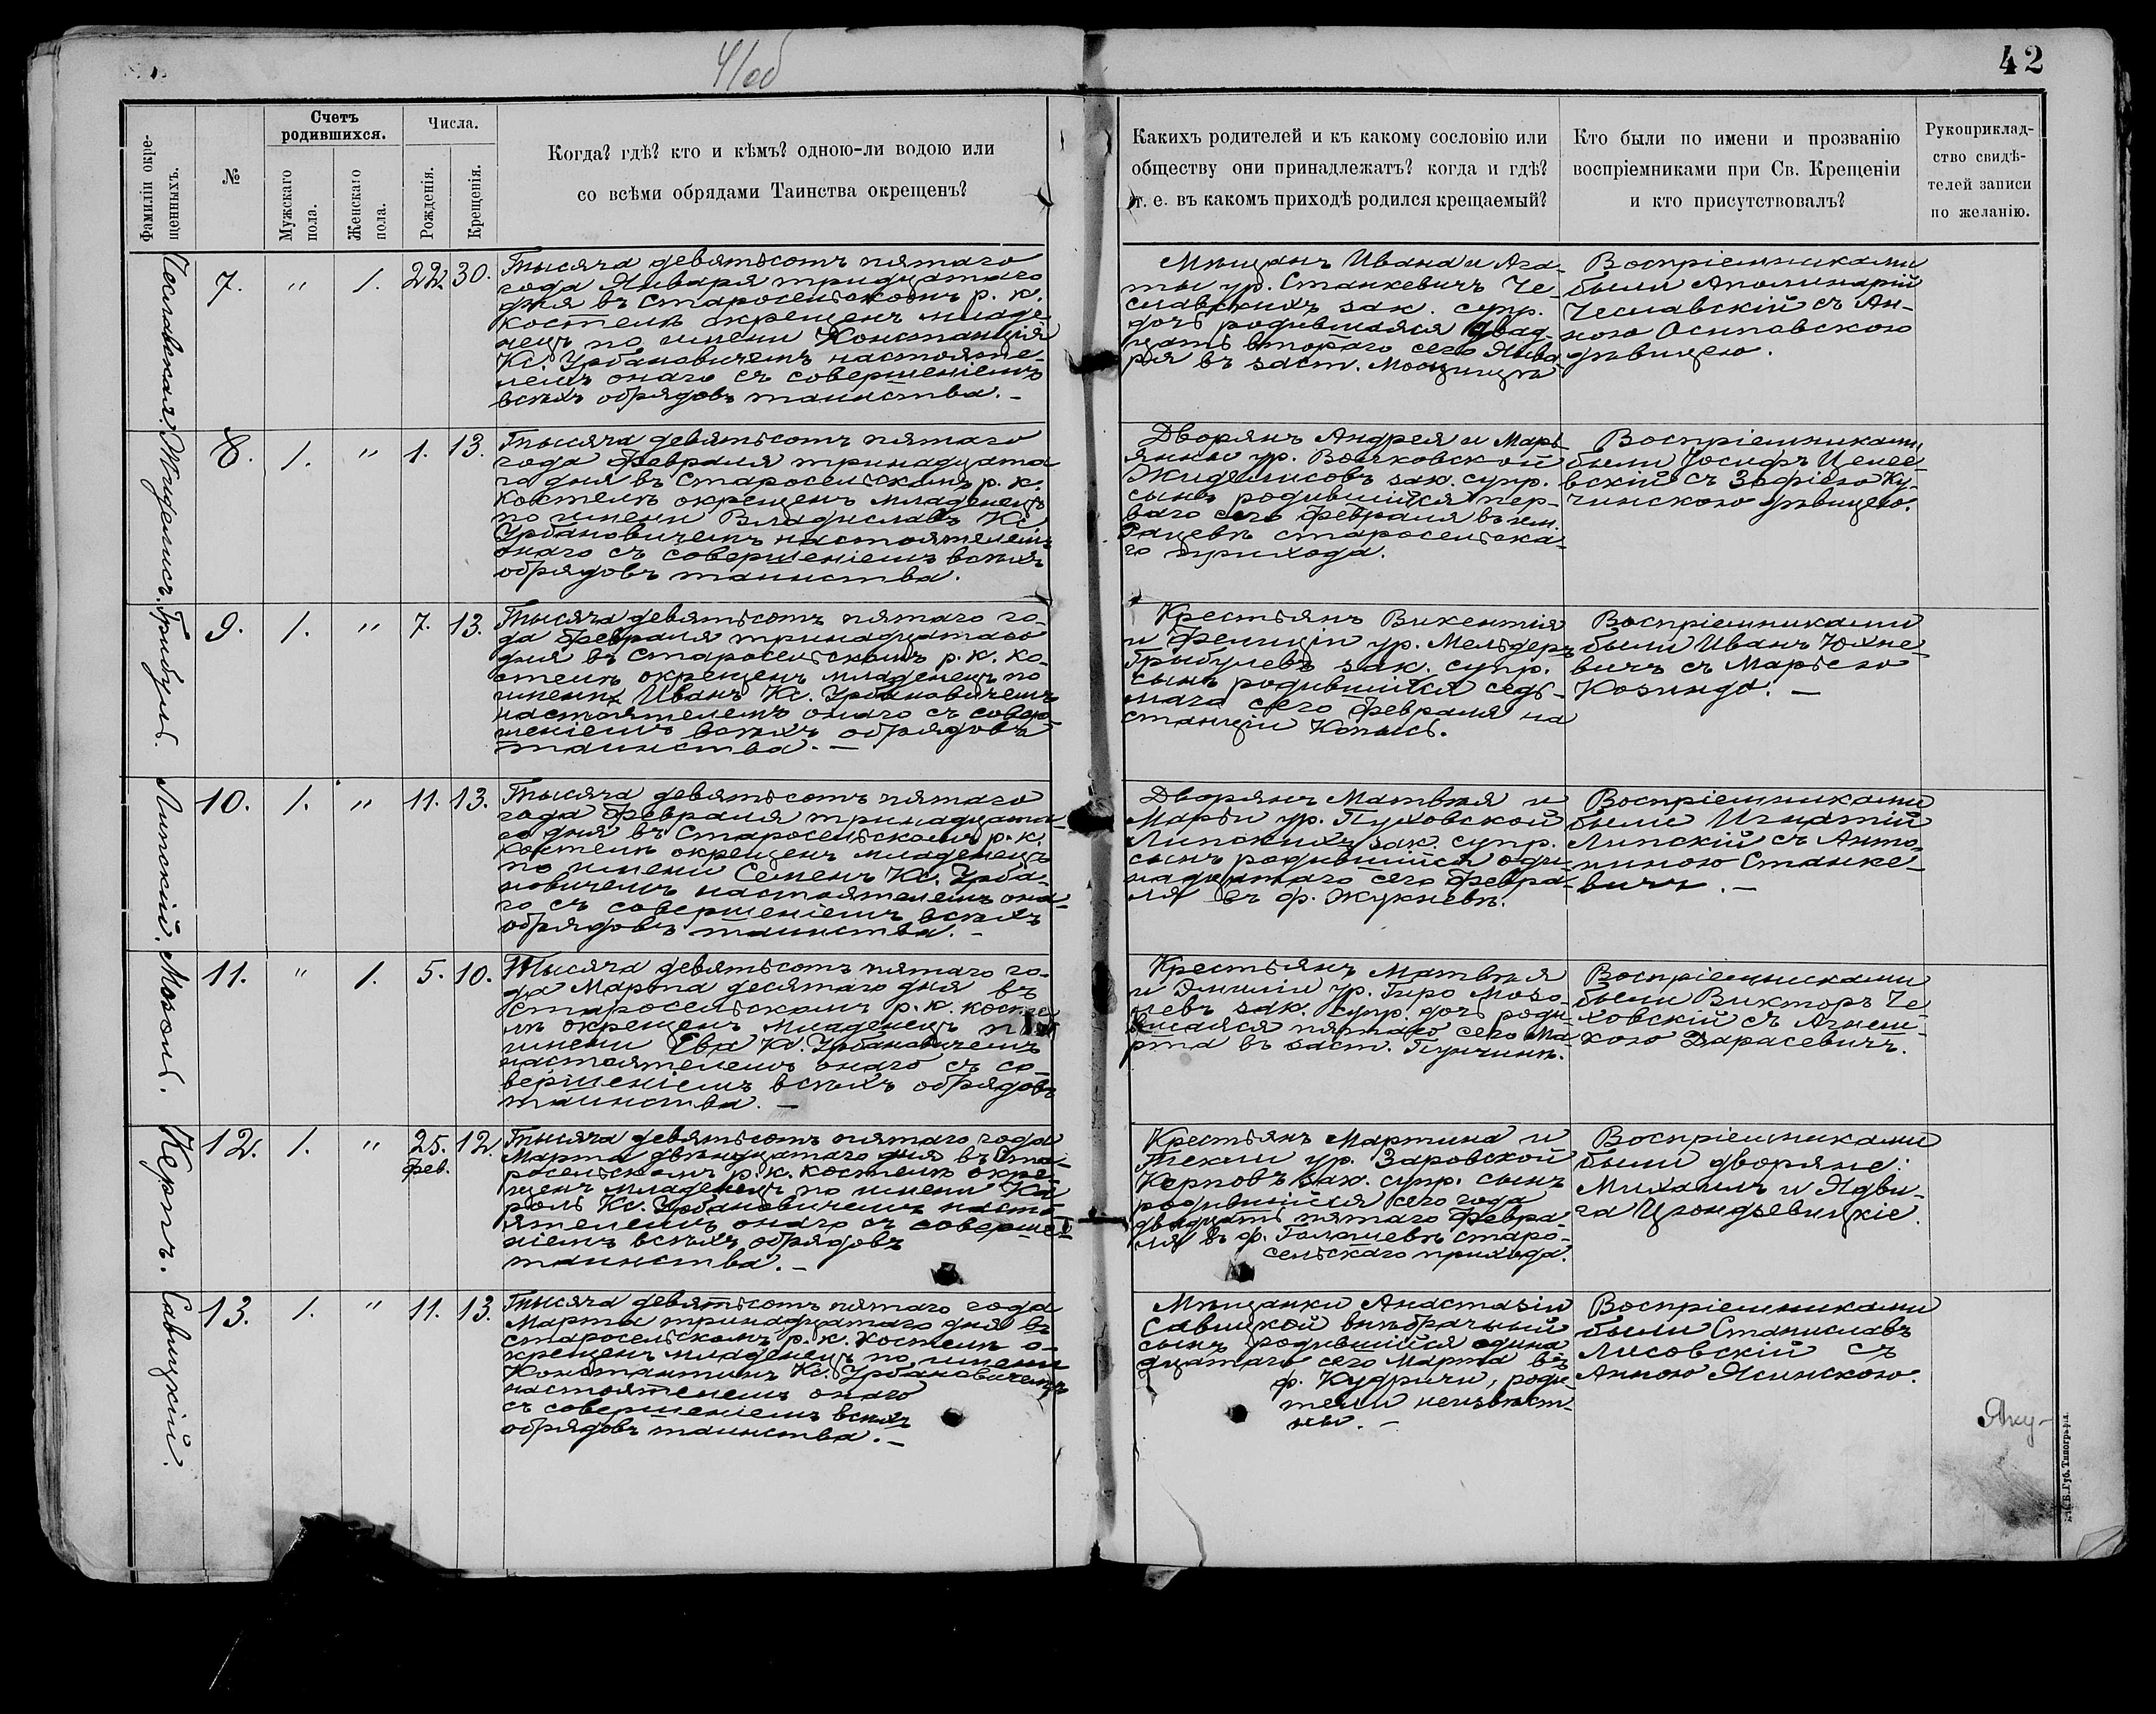 41об
42
Фамиліи окре-
щенныхъ.
№
Счетъ
родившихся.
Мужскаго
пола.
Женскаго
пола.
Числа.
Рожденія.
Крещенія.
Когда? гдѣ? кто и кѣмъ? одною-ли водою или
со всѣми обрядами Таинства окрещенъ?
Какихъ родителей и къ какому сословію или
обществу они принадлежатъ? когда и гдѣ?
т. е. въ какомъ приходѣ родился крещаемый?
Кто были по имени и прозванію
воспріемниками при Св. Крещеніи
и кто присутствовалъ?
Рукоприклад-
ство свидѣ-
телей записи
по желанію.
Чеславская.
7. " 1. 22. 30.
Тысяча девятьсотъ пятаго
года Января тридцатаго
дня въ Старосельскомъ р. к.
костелѣ окрещенъ младе
нецъ по имени Констанція
Кс. Урбановичемъ настояте-
лемъ онаго съ совершеніемъ
всѣхъ обрядовъ таинства. -
Мѣщанъ Ивана и Ага-
ты ур. Станкевичъ Че-
славскихъ зак. супр.
дочь родившаяся двад-
цать втораго сего Янва
ря въ заст.
Воспріемниками
были Аполинарій
Чеславскій съ Ан-
ною Осиповскою
дѣвицею.
Жиделисъ.
8. 1. " 1. 13.
Тысяча девятьсотъ пятаго
года Февраля тринадцата
го дня въ Старосельскомъ р. к.
Костелѣ окрещенъ младенецъ
по имени Владиславъ Кс.
Урбановичемъ настоятелемъ
онаго съ совершеніемъ всѣхъ
обрядовъ таинства.
Дворянъ Андрея и Марь
янны ур. Волковской
Жиделисовъ зак. супр.
сынъ родившійся пер-
ваго сего Февраля въ им.
Рацевѣ старосельска-
го прихода.
Воспріемниками
были Іосифъ
вскій съ Зофіею Ку-
чинскою дѣвицею.
Грибуль.
9. 1. " 7. 13.
Тысяча девятьсотъ пятаго го-
да Февраля тринадцатаго
дня въ Старосельскомъ р. к. ко-
стелѣ окрещенъ младенецъ по
имени Иванъ Кс. Урбановичемъ
настоятелемъ онаго съ совер-
шеніемъ всѣхъ обрядовъ
таинства. -
Крестьянъ Викентія
и Фелиціи ур. Мельдеръ
Грыбулевъ зак. супр.
сынъ родившійся седь-
маго сего Февраля на
станціи Копысь.
Воспріемниками
были Иванъ Юхне-
вичъ съ Марьею
Козинда. -
Липскій.
10. 1. " 11. 13.
Тысяча девятьсотъ пятаго
года Февраля тринадцата-
го дня въ Старосельскомъ р. к.
костелѣ окрещенъ младенецъ
по имени Семенъ Кс. Урба-
новичемъ настоятелемъ она-
го съ совершеніемъ всѣхъ
обрядовъ таинства. -
Дворянъ Матвѣя и
Марьи ур. Пуховской
Липскихъ зак. супр.
сынъ родившійся оди-
надцатаго сего Февра-
ля въ ф. Жукневѣ.
Воспріемниками
были Игнатій
Липскій съ Анто-
ниною Станке-
вичъ. -
Мозоль.
11. " 1. 5. 10.
Тысяча девятьсотъ пятаго го-
да Марта десятаго дня въ
Старосельскомъ р. к. косте
лѣ окрещенъ младенецъ по
имени Ева Кс. Урбановичемъ
настоятелемъ онаго съ со-
вершеніемъ всѣхъ обрядовъ
таинства. -
Крестьянъ Матвѣя
и Эмиліи ур. Гиро Мозо-
левъ зак. супр. дочь роди-
вшаяся пятаго сего Ма-
рта въ заст.
Воспріемниками
были Викторъ Че-
ховскій съ Агнеш-
кою Дарасевичъ.
Керпъ.
12. 1. " 25. 12.
Фев.
Тысяча девятьсотъ пятаго года
Марта двѣнадцатаго дня въ Ста-
росельскомъ р. к. костелѣ окре-
щенъ младенецъ по имени Ка
роль Кс. Урбановичемъ насто-
ятелемъ онаго съ соверше-
ніемъ всѣхъ обрядовъ
таинства. -
Крестьянъ Мартина и
Текли ур. Заровской
Керповъ зак. супр. сынъ
родившійся сего года
двадцать пятаго Февра-
ля въ ф. старо-
сельскаго прихода.
Воспріемниками
были дворяне:
Михаилъ и Ядви-
га
Савицкій.
13. 1. " 11. 13.
Тысяча девятьсотъ пятаго года
Марта тринадцатаго дня въ
старосельскомъ р. к. костелѣ о-
крещенъ младенецъ по имени
Константинъ Кс. Урбановичемъ
настоятелемъ онаго
съ совершеніемъ всѣхъ
обрядовъ таинства. -
Мѣщанки Анастазіи
Савицкой внѣбрачный
сынъ родившійся одина
дцатаго сего Марта въ
ф. Кудричи, роди-
тели неизвѣст-
ны. -
Воспріемниками
были Станиславъ
Лисовскій съ
Анною Ясинскою.
Яку-
Губ. Типографія.